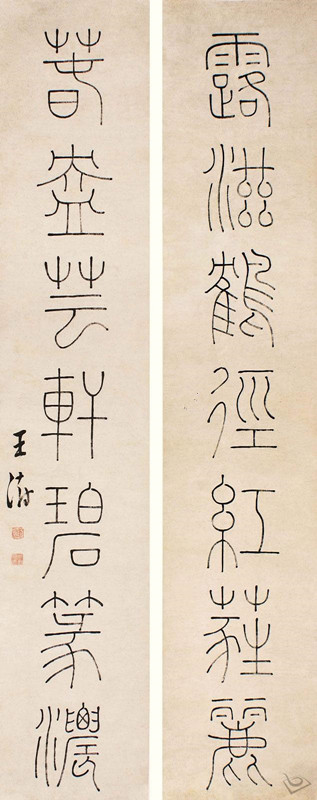 露滋鶴徑紅蕤麗
春盎芸軒碧篆濃
王澍